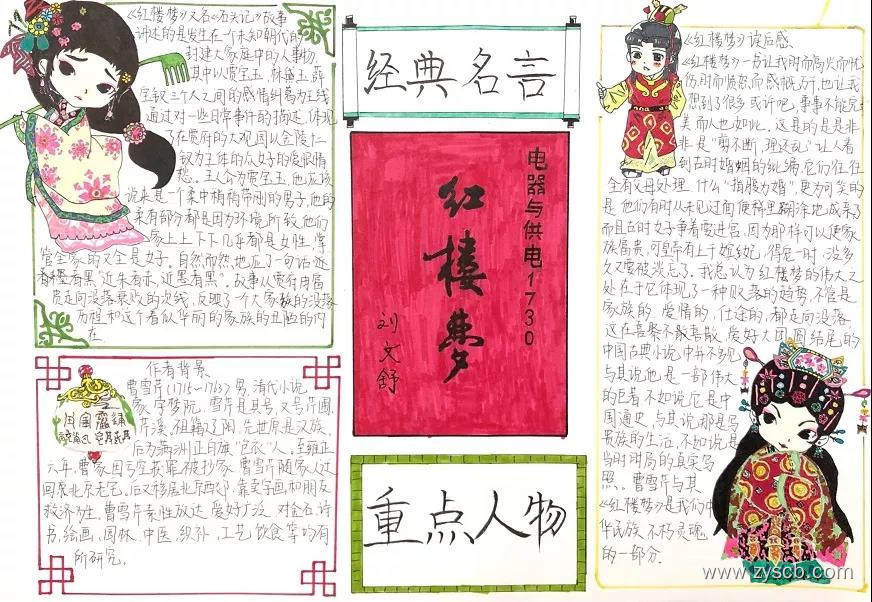 《红楼梦》又名《石头记》故事
讲述的是发生在一个未知朝代的
封建大家庭中的人事物
其中以贾宝玉、林黛玉、薛
宝钗三个人之间的感情纠葛为主线
通过对一些日常事件的描述体现
了在贾府的大观园以金陵十二
钗为主体的众女的爱恨情
愁。主人公为贾宝玉,他应该
说来是一个柔中稍稍带刚的男子,他的
柔有部分都是因为环境所致,他们
家上上下下几乎都是女性,掌
管全家的又全是女子。自然而然地应了一句话
近朱者赤,近墨者黑"。故事从贾府由富
贵走向没落衰败的次线,反映了一个大家族的没落
历程和这个看似华丽的家族的丑陋的内
在
作者背景
曹雪芹(1715-1763)男,清代小说
家,字梦阮,雪芹是其号,又号芹圃、
芹溪。祖籍辽阳,先世原是汉族,
后为满洲正白旗"包衣"人。至雍正
六年,曹家因亏空获罪被抄家,曹雪芹随家人迁
回北京老宅。后又移居北京西郊,靠卖字画和朋友
救济为生。曹雪芹素性放达,爱好广泛,对金石、诗
书、绘画、园林、中医、织补、工艺、饮食等均有
所研究。
经典名言
电器与供电1730
红楼梦
刘文舒
重点人物
《红楼梦》读后感
《红楼梦》一书让我时而高兴而忧
伤,时而愤怒而感慨万千,也让我
想到了很多,或许吧,事事不能完
美,而人也如此。这真的是是非
非,是"剪不断,理还乱"让人看
到古时婚姻的纰漏,它们往往
全有父母处理,什么"指腹为婚"更为可笑的
是,他们有时从未见过面便稀里糊涂地成亲了
而且古时女子争着要进宫,因为那样可以使家
族富贵,可皇帝有上千嫔妃,得宠一时,没多
久又要被淡忘了。我总认为红楼梦的伟大之
处在于它体现了一种败落的趋势,不管是
家族的,爱情的,仕途的,都走向没落
这在喜聚不散喜散,爱好大团圆结尾的
中国古典小说中并不多见
与其说他是一部伟大
的巨着,不如说它是中
国通史,与其说那是写
贵族的生活,不如说是
当时时局的真实写
照。曹雪芹与其
《红楼梦》是我们中
华民族不朽灵魂
的一部分.
www.zyscb.com